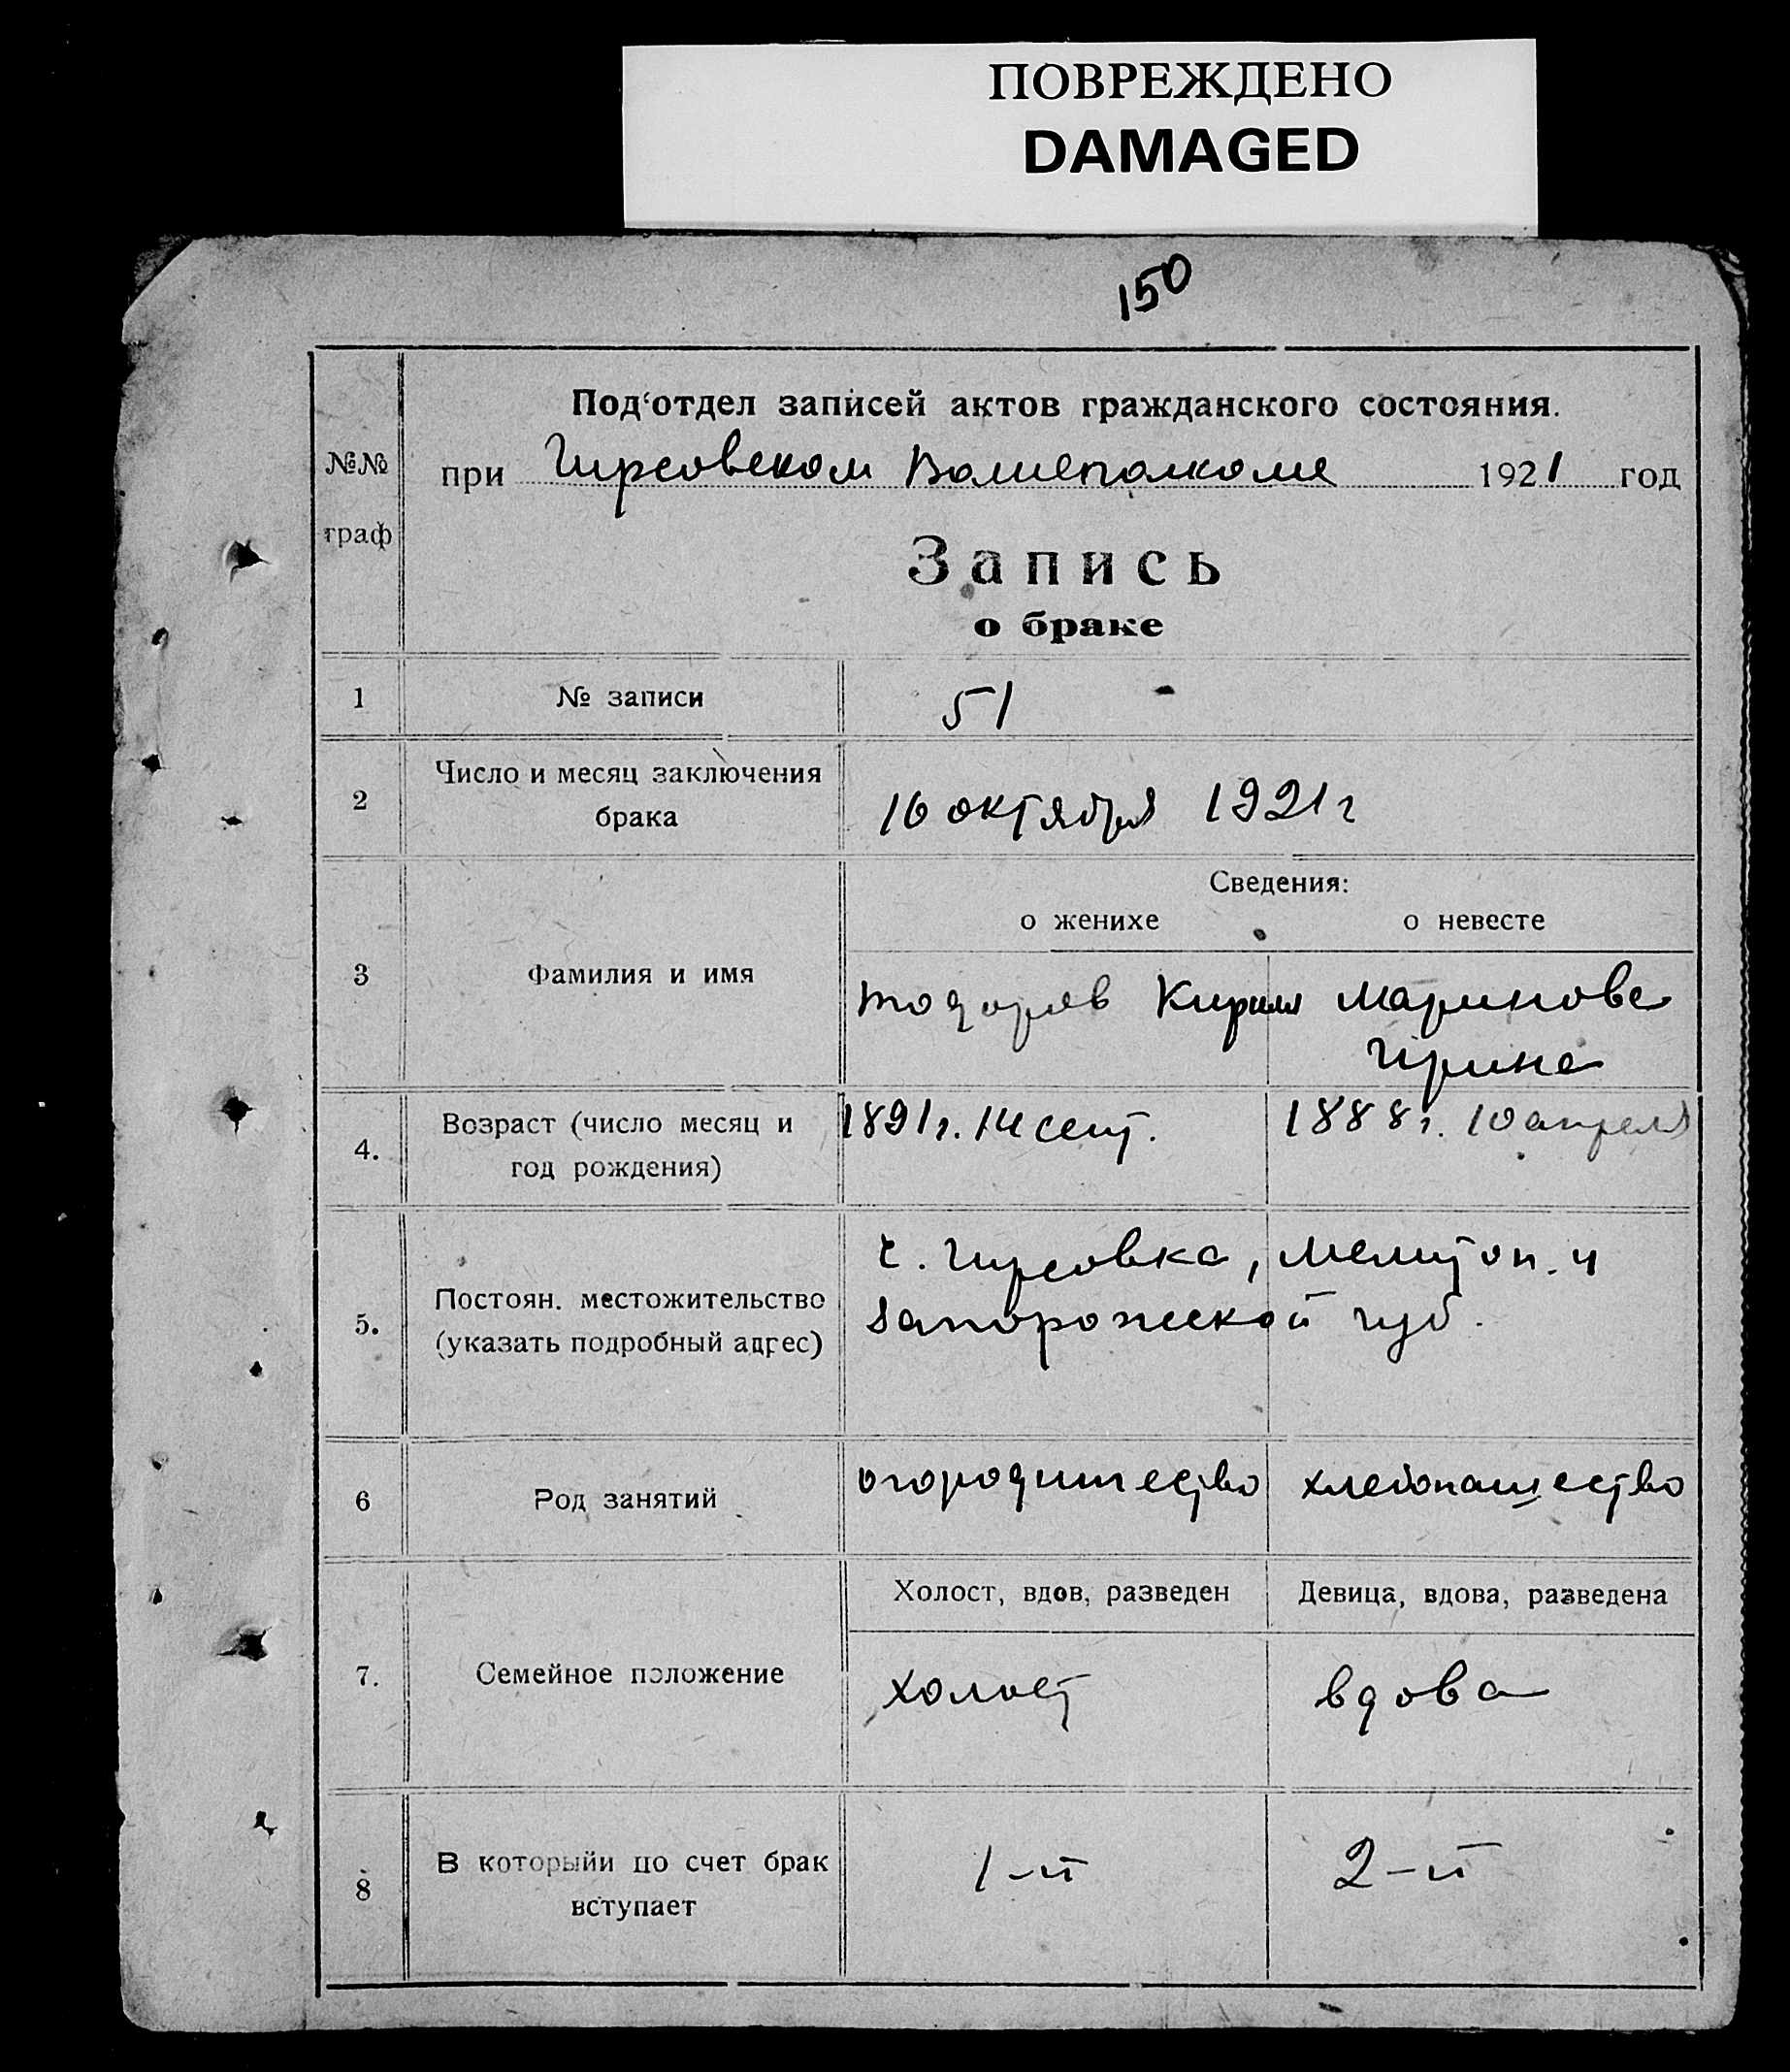 ПОВРЕЖДЕНО
DAMAGED
150
Под‘отдел записей актов гражданского состояния.
№№ граф
при Гирсовском Волисполкоме 1921 год
Запись
о браке
1 № записи 51
2 Число и месяц заключения брака 16 октября 1921 г
Сведения:
о женихе о невесте
3 Фамилия и имя Тодоров Кирилл Маринова
Ирина
4. Возраст (число месяц и год рождения) 1891 г. 14 сент. 1888 г. 10 апреля
5. Постоян. местожительство (указать подробный адрес) с. Гирсовка, Мелитоп. у
Запорожской губ.
6 Род занятий огородничество хлебопашество
Холост, вдов, разведен Девица, вдова, разведена
7. Семейное положение холост вдова
8 В которыйи по счет брак вступает 1-й 2-й